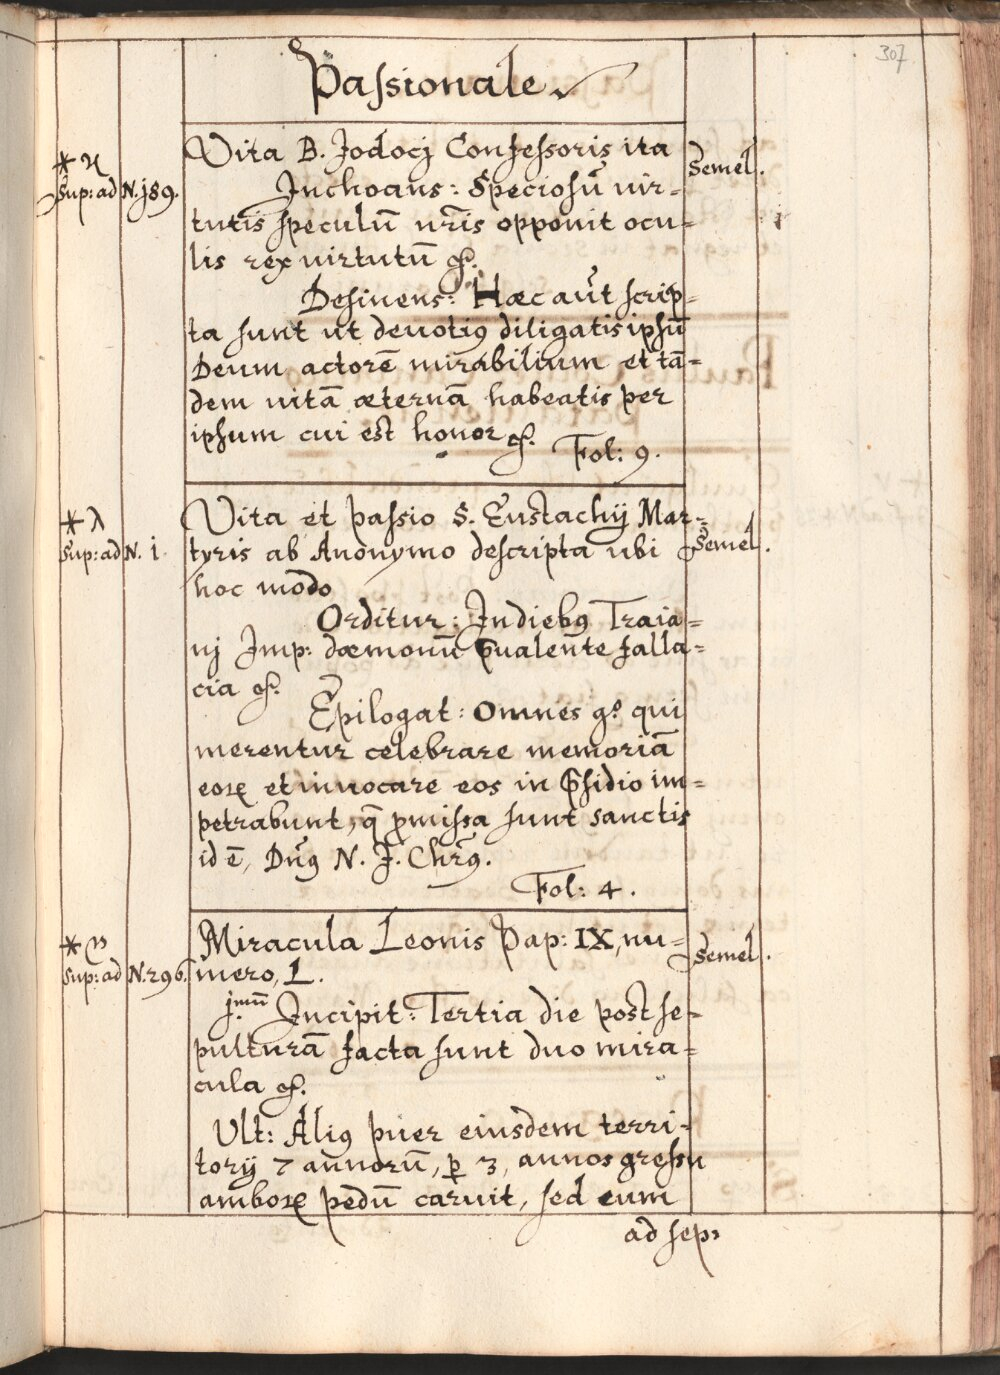 307
Passionale
Vita B. Jodocj Confessoris ita
Semel.
Sup: ad N. j89.
Jnchoans: Speciosũ vir-
tutis speculũ nr̃is opponit ocu-
lis rex virtutũ &.
Desinens: Hæc aũt scrip-
ta sunt ut devotiꝰ diligatis ipsũ
Deum actorẽ mirabilium et tã-
dem vitã æternã habeatis per
ipsum cui est honor &.
Fol: 9.
* λ
Vita et passio S. Eustachij Mar-
Sup: ad N. i.
tyris ab Anonymo descripta ubi
Semel.
hoc modo
Orditur: Jn diebꝰ Traia-
nj Imp: dæmonũ p̃valente falla-
cia &.
Epilogat: Omnes gº. qui
merentur celebrare memoriã
eoꝝ et invocare eos in p̃sidio im-
petrabunt, q̃ ꝓmissa sunt sanctis
id ẽ, Dñꝰ N. J. Chrꝰ.
Fol: 4.
Miracula Leonis Pap: IX, nu-
Semel.
Sup: ad N. 296.
mero, L.
jmũ Jncipit: Tertia die post se-
pulturã facta sunt duo mira-
cula &.
Ult: Aliꝰ puer eiusdem terri-
torij 7 annorũ, ꝑ 3, annos gressu
amboꝝ pedũ caruit, sed eum
ad sep: